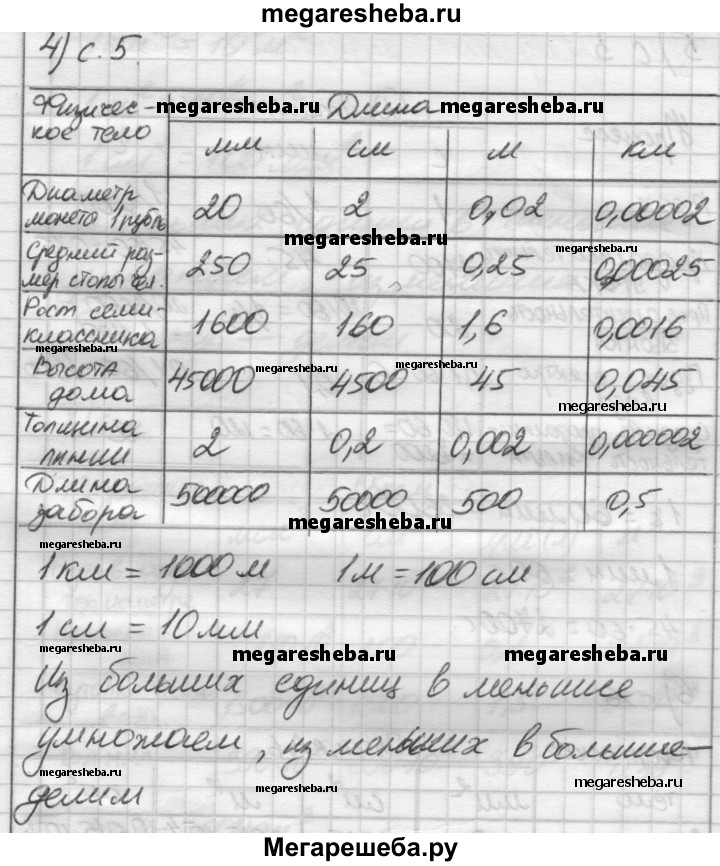 megaresheba.ru
4) с. 5.
Физичес- megaresheba.ru Длина megaresheba.ru
кое тело мм см м км
Диаметр
монеты 1 рубль 20 2 0,02 0,00002
megaresheba.ru
megaresheba.ru
Средний раз-
мер стопы чел. 250 25 0,25 0,00025
Рост семи-
классника 1600 160 1,6 0,0016
megaresheba.ru
Высота megaresheba.ru
дома 45000 4500 45 0,045
megaresheba.ru
Толщина
линии 2 0,2 0,002 0,000002
Длина
забора 500000 50000 500 0,5
megaresheba.ru
megaresheba.ru
1 км = 1000 м 1 м = 100 см
1 см = 10 мм
megaresheba.ru megaresheba.ru
Из больших единиц в меньшие
умножаем, из меньших в большие-
megaresheba.ru megaresheba.ru
делим
megaresheba.ru
Мегарешеба.ру